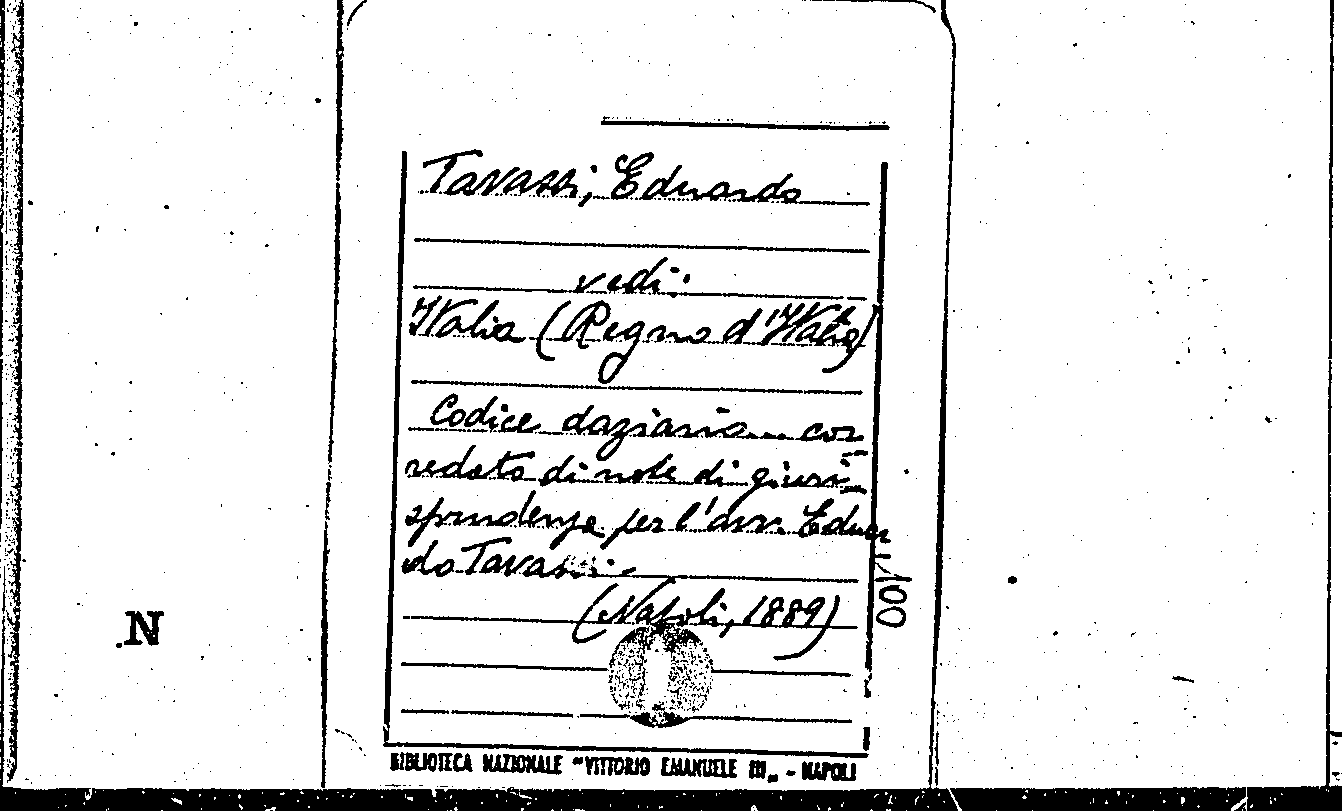 Tavassi, Eduardo
vedi:
Italia (Regno d'Italia)
Codice daziario... cor
redato di note di giuri_
sprudenza per l'avv. Eduar
do Tavassi.-
(Napoli, 1889)
N
BIBLIOTECA NAZIONALE "VITTORIO EMANUELE III„ - NAPOLI